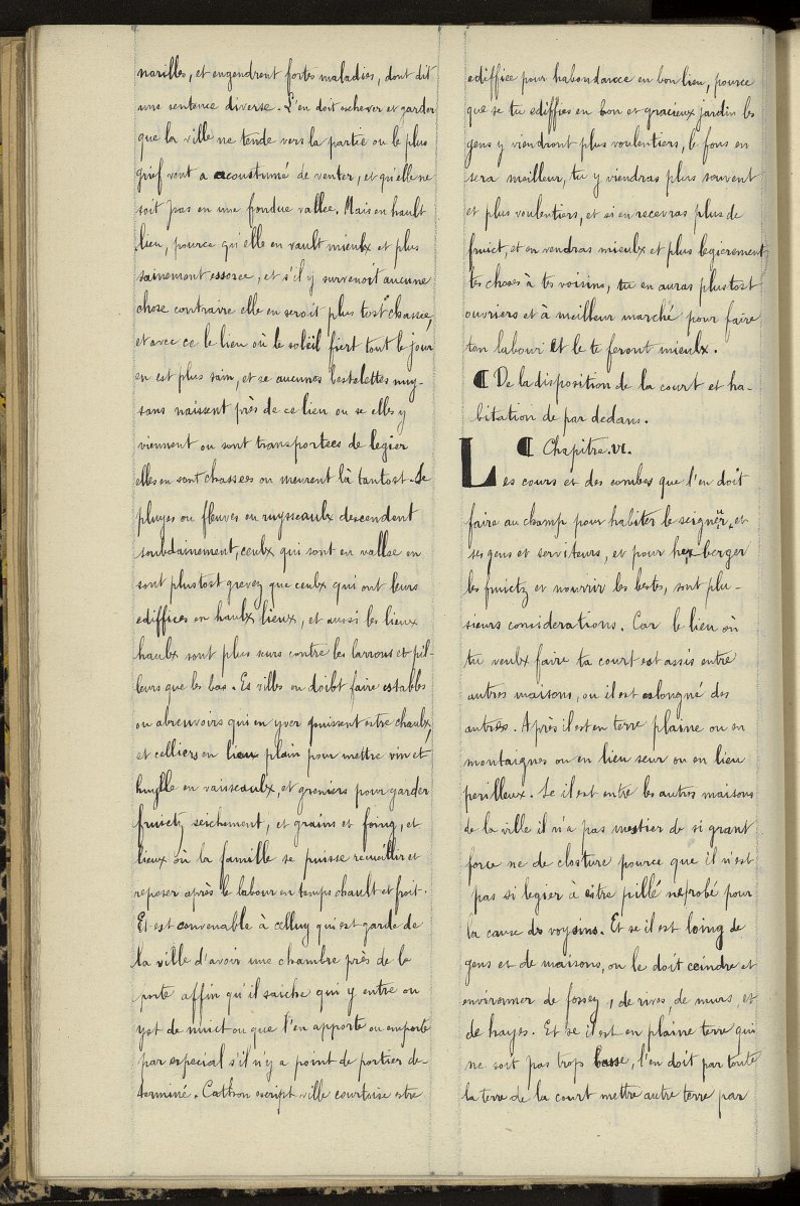 narilles, et engendrent fortes maladies, dont dit
une sentence diverse. L'en doit eschever et garder
que la ville ne tende vers la partie ou le plus
grief vent a acoustumé de venter, et qu'elle ne
soit pas en une fondue vallee. Mais en hault
lieu, pource qu'elle en vault mieulx et plus
sainement essoree, et s'il y survenoit aucune
chose contraire elle en seroit plus tost chassee,
et avec ce le lieu où le soleil fiert tout le jour
en est plus sain, et se aucunes bestelettes nuy-
sans naissent près de ce lieu ou se elles y
viennent ou sont transportees de legier
elles en sont chassees ou meurent là tantost. Se
pluyes ou fleuves en ruysseaulx descendent
soubdainement, ceulx qui sont en vallee en
sont plustost grevez que ceulx qui ont leurs
ediffices en haulx lieux, et aussi les lieux
haulx sont plus seurs contre les larrons et pil-
leurs que les bas. Es villes on doibt faire estables
ou abreuvoirs qui en yver puissent estre chaulx,
et celliers en lieux plain pour mettre vin et
huylle en vaisseaulx, et greniers pour garder
fruictz seichement, et grains et foing, et
lieux où la famille se puisse recueillir et
reposer après le labour en temps chault et froit.
Et est convenable à celluy qui est garde de
la ville d'avoir une chambre près de la
porte affin qu'il saiche qui y entre ou
yst de nuict ou que l'en apporte ou emporte
par especial s'il n'y a point de portier de-
terminé. Cathon escript ville courtoise estre
ediffiee pour habondance en bon lieu, pource
que se tu ediffies en bon et gracieux jardin les
gens y viendront plus voulentiers, le fons en
sera meilleur, tu y viendras plus souvent
et plus voulentiers, et si en recevras plus de
fruict, et en vendras mieulx et plus legierement
tes choses à tes voisins, tu en auras plustost
ouvriers et à meilleur marché pour faire
ton labour et le te feront mieulx.
¶ De la disposition de la court et ha-
bitation de par dedans.
¶ Chapitre .VI.
Les cours et des combes que l'en doit
faire au champ pour habiter le seigneur, et
ses gens et serviteurs, et pour herberger
les fruictz et nourrir les bestes, sont plu-
sieurs considerations. Car le lieu où
tu veulx faire ta court est assis entre
autres maisons, ou il est eslongné des
autres. Après il est en terre plaine ou en
montaignes ou en lieu seur ou en lieu
perilleux. Se il est entre les autres maisons
de la ville il n'a pas mestier de si grant
force ne de closture pource que il n'est
pas si legier à estre pillé ne robé pour
la cause des voysins. Et se il est loing de
gens et de maisons, on le doit ceindre et
environner de fossez, de rives, de murs, et
de hayes. Et se il est en plaine terre qui
ne soit pas trop basse, l'en doit par toute
la terre de la court mettre autre terre par